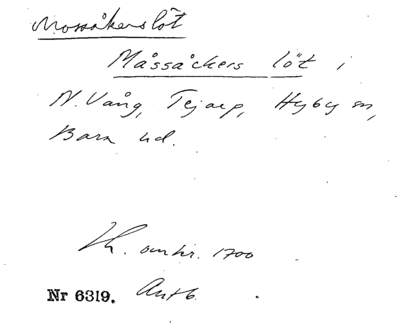 Mossåkerslöt
Måssåckers löt i
N. Vång, Tejarp, Hyby sn,
Bara hd.
Lh. omkr. 1700
Nr 6319. Antb.